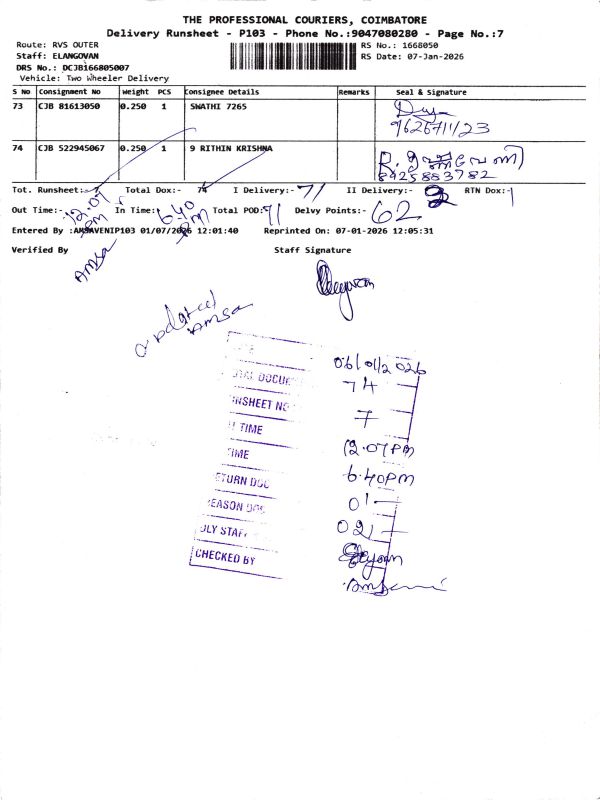 THE PROFESSIONAL COURIERS, COIMBATORE
Delivery Runsheet - P103 - Phone No.:9047080280 - Page No.:7
Route: RVS OUTER
RS No.: 1668050
Staff: ELANGOVAN
RS Date: 07-Jan-2026
DRS No.: DCJB166805007
Vehicle: Two Wheeler Delivery
S No Consignment No Weight PCS Consignee Details Remarks Seal & Signature
73 CJB 81613050 0.250 1 SWATHI 7265
9626711123
74 CJB 522945067 0.250 1 9 RITHIN KRISHNA
8425883782
Tot. Runsheet:- 7 Total Dox:- 74 I Delivery:- 71 II Delivery:- 2 RTN Dox:- 1
Out Time:- 12.07 PM In Time: 6.40 PM Total POD: 71 Delvy Points:- 62
Entered By :AMSAVENIP103 01/07/2026 12:01:40 Reprinted On: 07-01-2026 12:05:31
Verified By Amsa Staff Signature
updated
Amsa
06/01/2026
74
RUNSHEET NO 7
TIME 12.07PM
TIME 6.40PM
RETURN DOC 01
REASON DOC 02
DLY STAFF
CHECKED BY